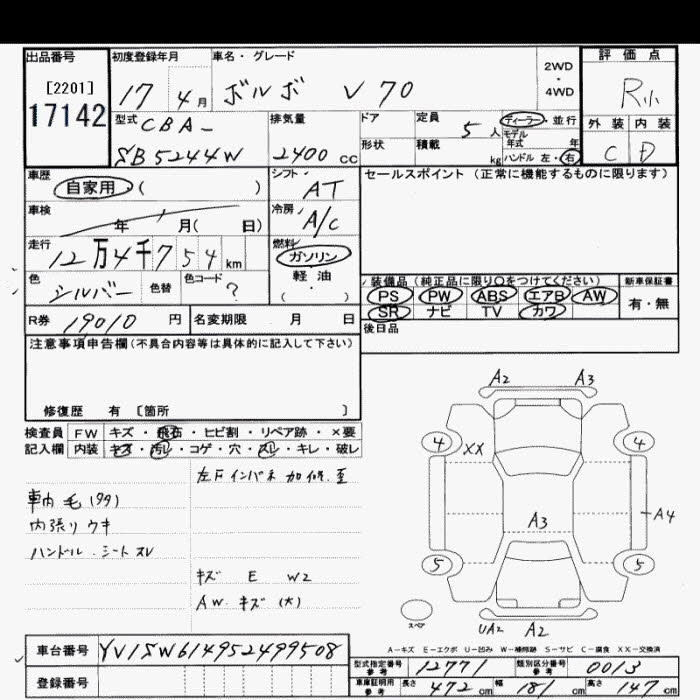 出品番号 初度登録年月 車名・グレード 2WD・4WD 評価点
[2201]
17142
17 4月 ボルボ V70 R小
型式 CBA- 排気量 ドア 定員 5人 ディーラー・並行 外装 内装
SB5244W 2400cc 形状 積載 kg モデル年式 年 C D
ハンドル 左・右
車歴 シフト セールスポイント (正常に機能するものに限ります)
自家用 ( ) AT
車検 年 月( 日) 冷房 A/C
走行 12万4千754km 燃料
ガソリン
色 シルバー 色替 色コード ? 軽油
( ・ )
装備品 (純正品に限り○をつけてください) 新車保証書
PS PW ABS エアB AW 有・無
SR ナビ TV カワ
R券 19010円 名変期限 月 日 後日品
注意事項申告欄(不具合内容等は具体的に記入して下さい)
修復歴 有 [箇所 ]
検査員 FW キズ・飛石・ヒビ割・リペア跡・×要
記入欄 内装 キズ・汚レ・コゲ・穴・スレ・キレ・破レ
左Fインパネ加修、歪
車内毛(99)
内張りウキ
ハンドル.シートスレ
キズ E W2
AW.キズ(大)
A2 A3
4 XX 4
A3 A4
5 5
スペア UA2 A2
A-キズ E-エクボ U-凹み W-補修跡 S-サビ C-腐食 XX-交換済
車台番号 YV1SW614952499508
登録番号
型式指定番号 参考 12771 類別区分番号 参考 0013
車庫証明用 参考 長さ 472cm 幅 181cm 高さ 147cm